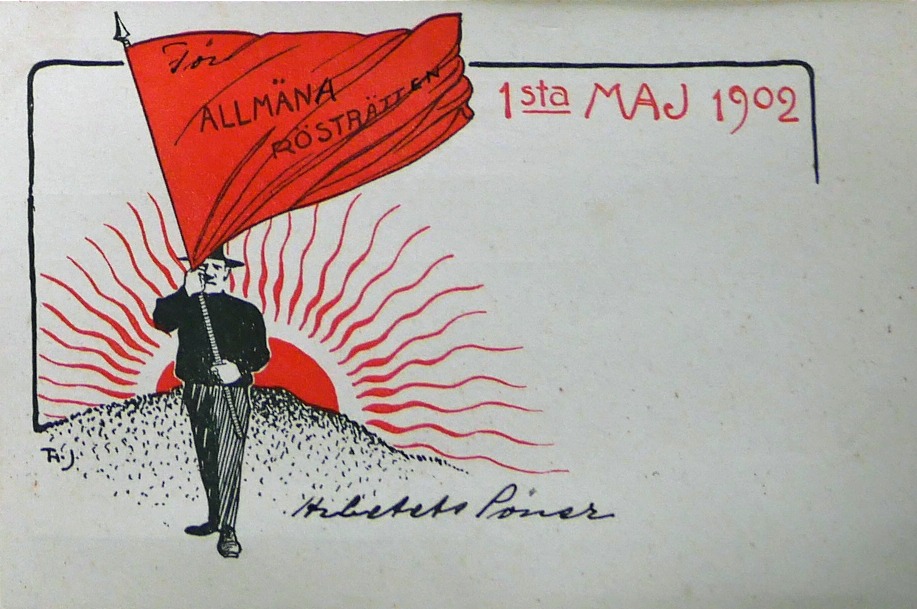 För
ALLMÄNA
RÖSTRÄTTEN
1sta MAJ 1902
Arbetets Söner